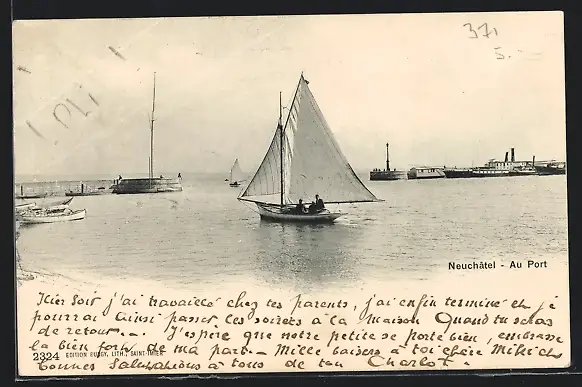 371
5.-
pli
Neuchâtel - Au Port
Hier Soir j'ai travaillé chez tes parents, j'ai enfin terminé et je
pourrai ainsi passer les soirées à la maison. Quand tu seras
de retour. - J'espère que notre petite se porte bien, embrasse
la bien fort de ma part - Mille baisers à toi chère
2324 EDITION BURGY, LITH., SAINT-IMIER
bonnes Salutations à tous de ton Charlot.